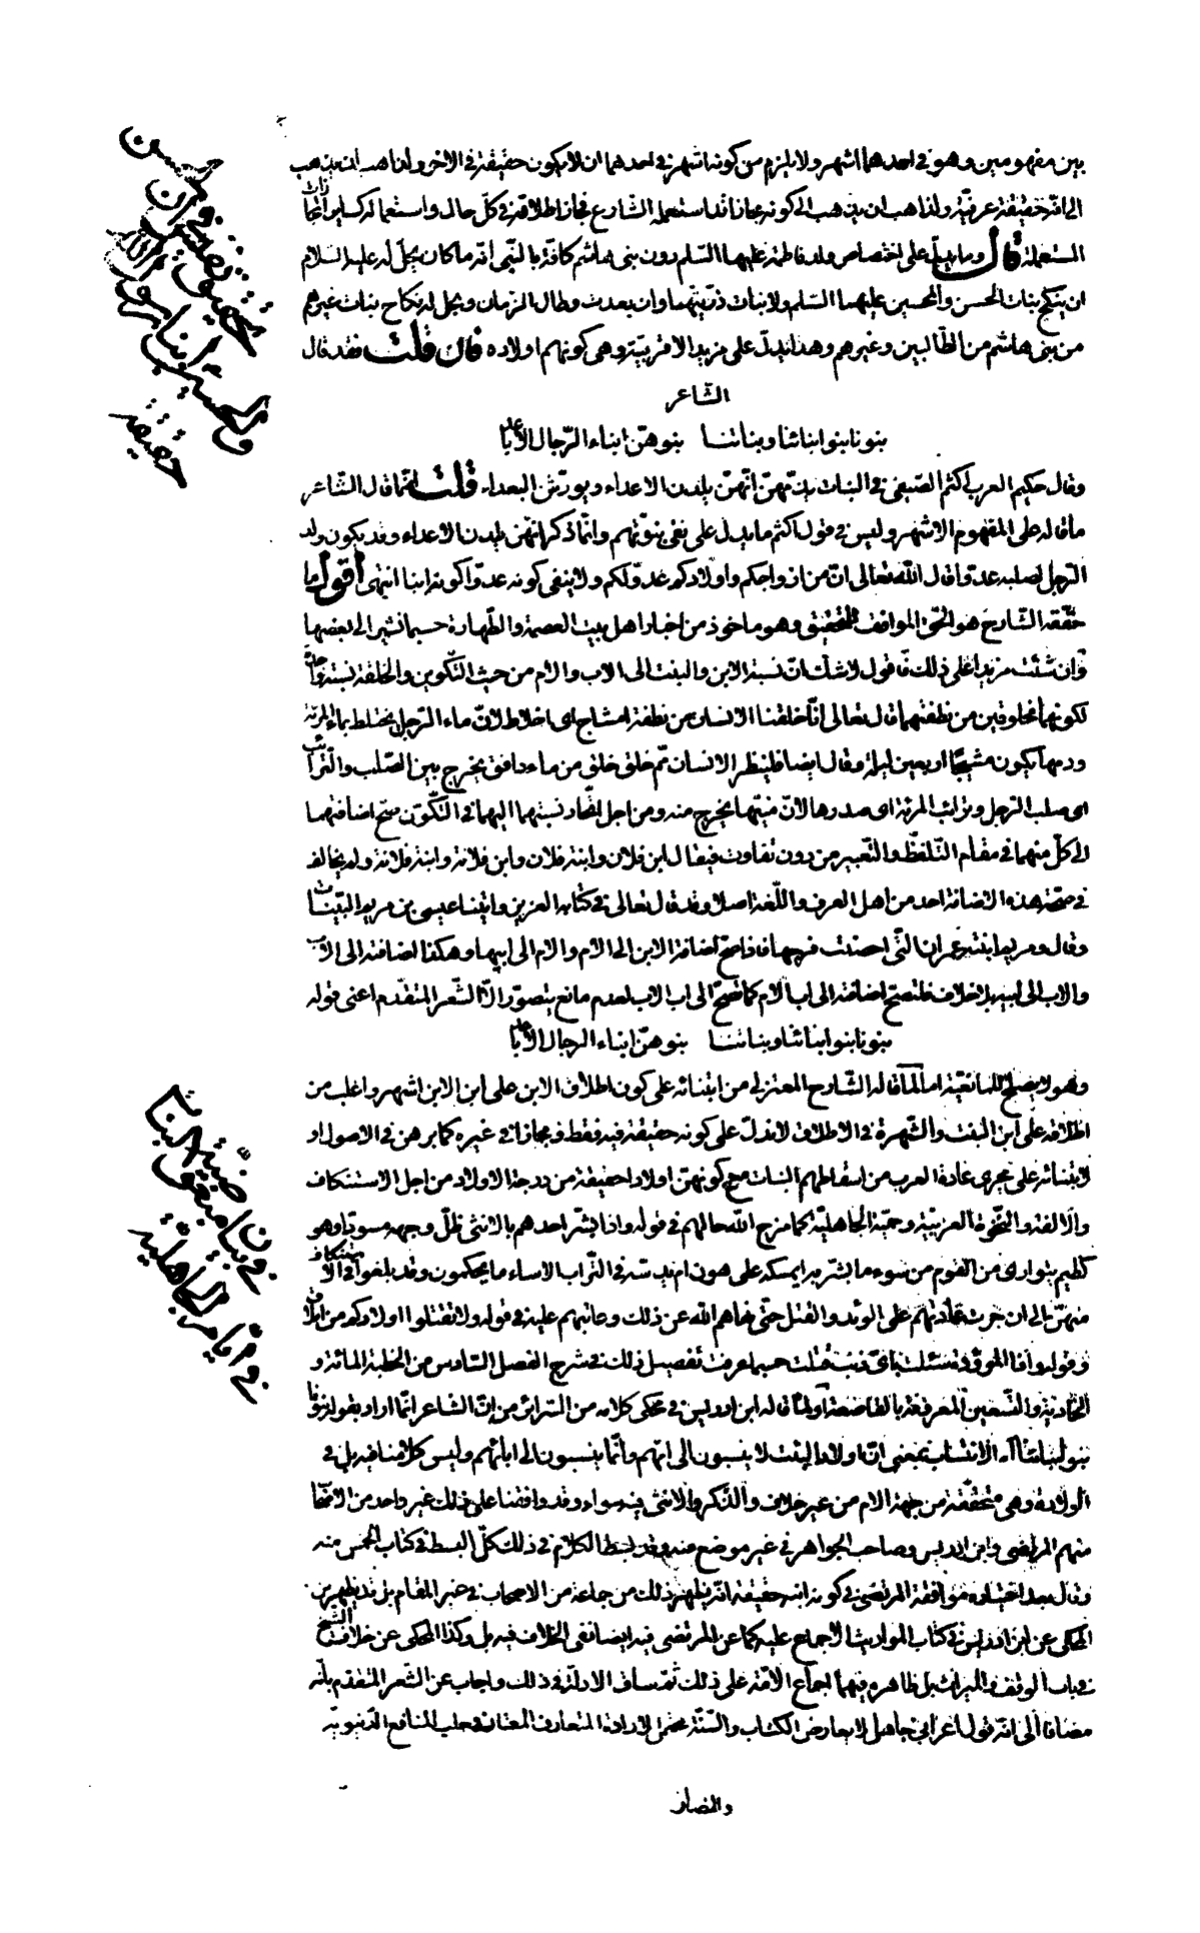 بين مفهومين وهو في احدهما اشهر ولا يلزم من كونه اشهر في احدهما ان لا يكون حقيقة في الاخر ولذاهب ان يذهب
الى انّه حقيقة عرفيّة ولذاهب ان يذهب الى كونه مجازا قد استعمله الشارع فجاز اطلاقه في كلّ حال واستعماله كساير المجازات
المستعملة قال وما يدلّ على اختصاص ولد فاطمة عليها السّلم دون بنى هاشم كافّة بالنّبى انّه ما كان يحلّ له عليه السّلام
ان ينكح بنات الحسن والحسين عليهما السّلم ولا بنات ذرّيتهما وان بعدت وطال الزمان ويحلّ له نكاح بنات غيرهم
من بنى هاشم من الطّالبيين وغيرهم وهذا يدلّ على مزيد الاقربيّة وهى كونهم اولاده قال قلت فقد قال
الشّاعر
بنونا بنو ابنائنا وبناتنا بنوهنّ ابناء الرّجال الاباعد
وقال حكيم العرب اكثم الصّيفى في البنات يذمّهنّ انّهنّ يلدن الاعداء ويورّثن البعداء قلت انّما قال الشّاعر
ما قاله على المفهوم الاشهر وليس في قول اكثم ما يدلّ على نفى بنوّتهم وانّما ذكر انّهنّ يلدن الاعداء وقد يكون ولد
الرّجل لصلبه عدوّا قال اللّه تعالى انّ من ازواجكم واولادكم عدوّا لكم ولا ينفى كونه عدوّا كونه ابنا انتهى اقول ما
حقّقه الشّارح هو الحقّ الموافق للتّحقيق وهو ماخوذ من اخبار اهل بيت العصمة والطّهارة حسبما نشير الى بعضها
وان شئت مزيدا على ذلك فاقول لا شكّ انّ نسبة الابن والبنت الى الاب والام من حيث التّكوين والخلقة نسبة واحدة
لكونهما مخلوقين من نطفتهما قال تعالى انّا خلقنا الانسان من نطفة امشاج اى اخلاط لانّ ماء الرّجل يختلط بماء المرئة
ودمها يكون مشيجا اربعين ليلة وقال ايضا فلينظر الانسان ممّ خلق خلق من ماء دافق يخرج بين الصّلب والترائب
اى صلب الرّجل وترائب المرئة اى صدرها لانّ منيّها يخرج منه ومن اجل اتّحاد نسبتهما اليهما في التكوّن صحّ اضافتهما
الى كلّ منهما في مقام التّلفّظ والتّعبير من دون تفاوت فيقال ابن فلان وابنة فلان وابن فلانة وابنة فلانة ولم يخالف
في صحّة هذه الاضافة احد من اهل العرف واللّغة اصلا وقد قال تعالى في كتابه العزيز واتينا عيسى بن مريم البيّنات
وقال ومريم ابنت عمران الّتى احصنت فرجها فاذا صحّ اضافة الابن الى الام والام الى ابيها وهكذا اضافته الى الاب
والاب الى ابيه بلا خلاف فلتصحّ اضافته الى اب الام كما تصحّ الى اب الاب لعدم مانع يتصوّر الّا الشّعر المتقدّم اعنى قوله
بنونا بنو ابنائنا وبناتنا بنوهنّ ابناء الرجال الاباعد
وهو لا يصلح للمانعيّة اما لما قاله الشّارح المعتزلى من ابتنائه على كون اطلاق الابن على ابن الابن اشهر واغلب من
اطلاقه على ابن البنت والشّهرة في الاطلاق لا تدلّ على كونه حقيقة فيه فقط ومجازا في غيره كما برهن في الاصول او
لابتنائه على مجرى عادة العرب من اسقاطهم البنات مع كونهنّ اولادا حقيقة من درجة الاولاد من اجل الاستنكاف
والالفة والنّخوة العربيّة وحميّة الجاهليّة كما مزح اللّه حالهم في قوله واذا بشّر احدهم بالانثى ظلّ وجهه مسودّا وهو
كظيم يتوارى من القوم من سوء ما بشّر به ايمسكه على هون ام يدسّه في التّراب الا ساء ما يحكمون وقد بلغوا في الاستنكاف
منهنّ الى ان جرت عادتهم على الوئد والقتل حتّى نهاهم اللّه عن ذلك وعاتبهم عليه في قوله ولا تقتلوا اولادكم من املاق
وقوله واذا الموؤدة سئلت باىّ ذنب قتلت حسبما عرفت تفصيل ذلك في شرح الفصل السّادس من الخطبة المائة و
الحادية والتّسعين المعروفة بالقاصعة او لما قاله ابن ادريس في محكى كلامه من السّرائر من انّ الشّاعر انّما اراد بقوله بنونا
بنو ابنائنا آه الانتساب بمعنى انّ اولاد البنت لا ينسبون الى امّهم وانّما ينسبون الى ابائهم وليس كلامنا فيه بل في
الولادة وهى متحقّقة من جهة الام من غير خلاف والذّكر والانثى فيه سواء وقد وافقنا على ذلك غير واحد من الاصحاب
منهم المرتضى وابن ادريس وصاحب الجواهر في غير موضع منه وقد بسط الكلام في ذلك كلّ البسط في كتاب الخمس منه
وقال بعد اختياره موافقة المرتضى في كونه ابنه حقيقة انّه يظهر ذلك من جماعة من الاصحاب في غير المقام بل قد يظهر من
المحكى عن ابن ادريس في كتاب المواريث الاجماع عليه كما عن المرتضى فيه ايضا نفى الخلاف فيه بل وكذا المحكى عن خلاف الشّيخ
في باب الوقف والميراث بل ظاهره فيهما اجماع الامّة على ذلك ثمّ ساق الادلّة في ذلك واجاب عن الشّعر المتقدّم بانّه
مضافا الى انّه قول اعرابى جاهل لا يعارض الكتاب والسّنّة محتمل لارادة المتعارف المعتاد في جلب المنافع الدّنيويّة
والمضار
تحقيق نفيس في ان
الحسن
والحسين ابنا رسول اللّه
حقيقة
في ان
قضيّة البنات
في ايّام الجاهليّة